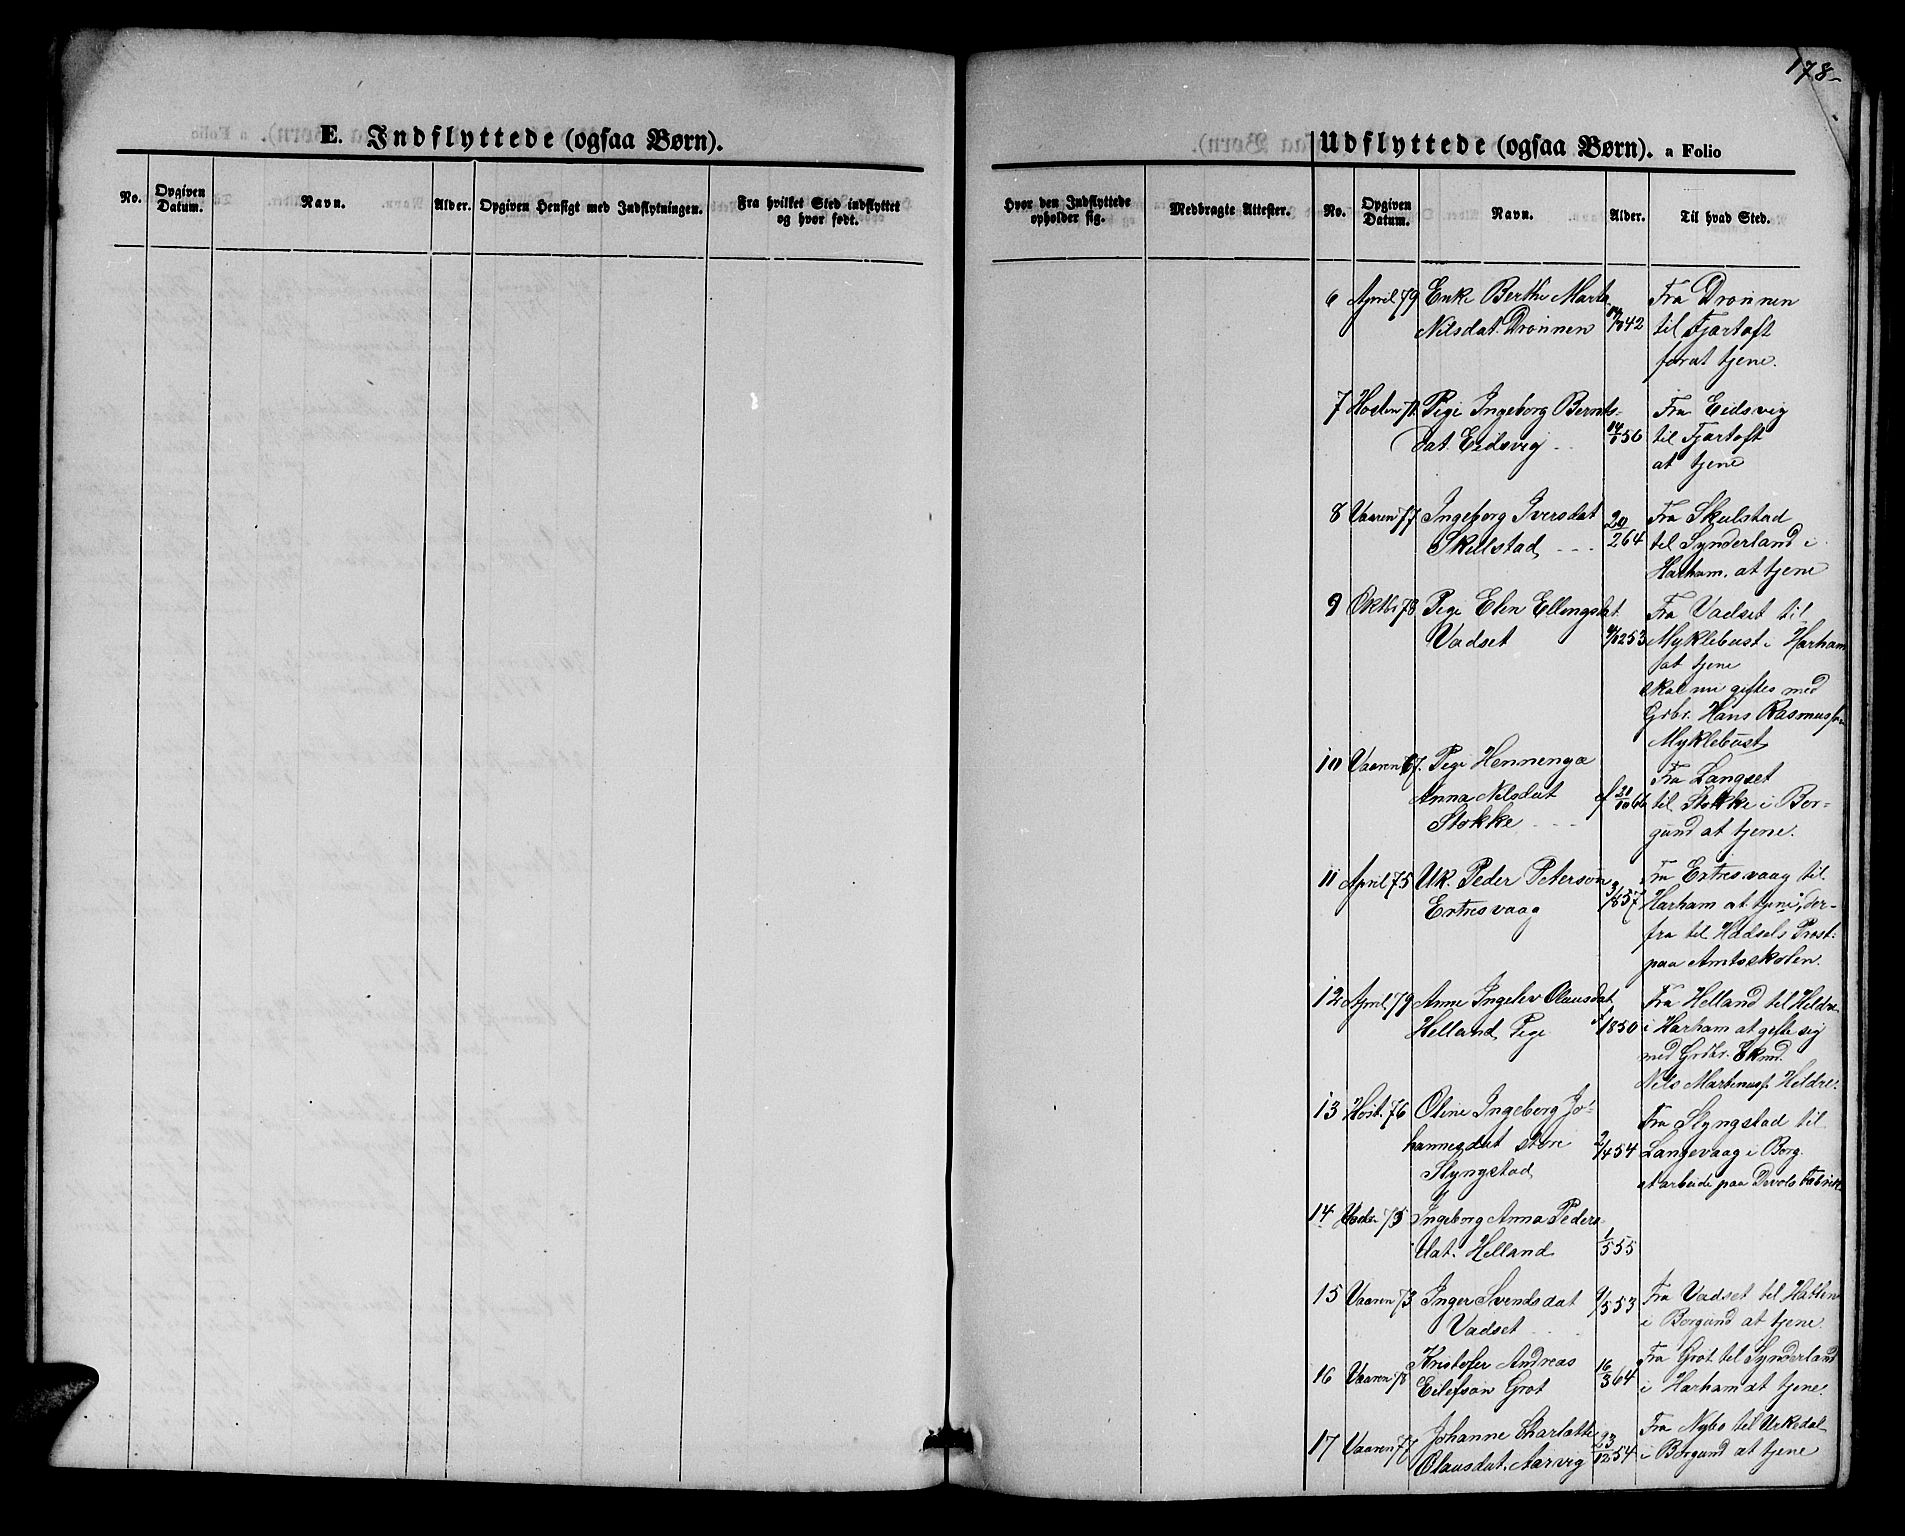 178-
E. Indflyttede (ogsaa Børn).
No. Opgiven Datum. Navn. Alder. Opgiven Hensigt med Indflytningen. Fra hvilket Sted indflyttet og hvor født.
Udflyttede (ogsaa Børn). a Folio
Hvor den Indflyttede opholder sig. Medbragte Attester. No. Opgiven Datum. Navn. Alder. Til hvad Sted.
6 April 79 Enke Berthe Marta Fra Drønnen
Nilsdat. Drønnen 42 til Fjærtoft
forat tjene.
7 Pige Ingeborg Bernts- Fra Eidsvig
dat. Eidsvig 14/1 56 til Fjærtoft
at tjene
8 Vaaren 77 Ingeborg Iversdat Fra Skulstad
Skulstad 20/2 64 til Synderland i
Harham. at tjene
9 Oktbr 78 Pige Elen Ellingsdat Fra Vadset til
Vadset 53 Myklebust i Harham
at tjene
skal nu giftes med
Grbr. Hans Rasmussen
Myklebust
10 Vaaren 67. Pige Henninga Fra Langset
Anna Nilsdat til Stokke i Bor-
Stokke gund at tjene.
11 April 75 Uk. Peder Peterson Fra Extresvaag til
Extresvaag 57 Harham at tjene, der-
fra til Hadsels Præst:
paa Amtsskolen.
12 April 79 Anne Ingelev Olausdat Fra Helland til Heldre
Helland, Pige 1850 i Harham at gifte sig
med Grdbr. Ekmd.
Nils Martinusf. Heldre.
13 Høst. 76 Oline Ingeborg Jo- Fra Slyngstad til
hannesdat store 2/4 54 Langevaag i Borg.
Slyngstad at arbeide paa Devols Fabrik
14 75 Ingeborg Anna Peders-
dat. Helland 1/5 55
15 Vaaren 73 Inger Svendsdat Fra Vadset til Hatlen
Vadset 53 i Borgund at tjene.
16 Vaaren 78 Kristofer Andreas Fra Grøt til Synderland
Eilefsøn Grøt 16/3 64 i Harham at tjene.
17 Vaaren 77 Johanne Charlotte Fra Nybø til Urkedal
Olausdat. Aarvig 23/12 54 i Borgund at tjene